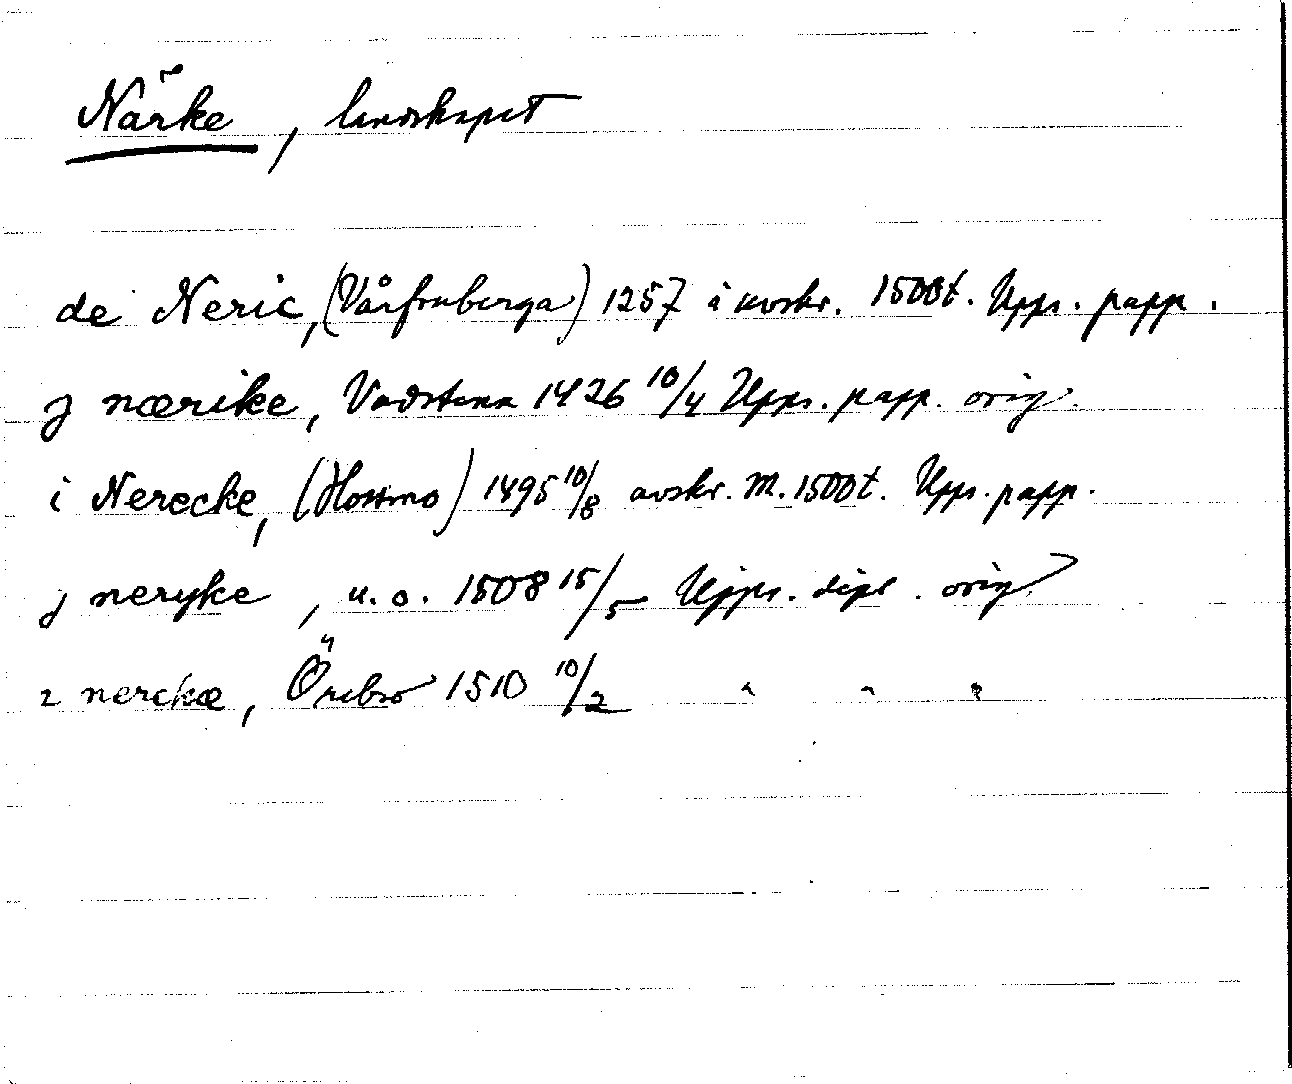 Närke, landskapet
de Neric, (Vårfruberga) 1257 i avskr. 1500t. Upps. papp.
j nærike, Vadstena 1426 10/4 Upps. papp. orig.
i Nerecke, (Hossmo) 1495 10/8 avskr. m. 1500t. Upps. papp.
j neryke, u. o. 1508 15/5 Upps. dipl. orig
i nerckæ, Örebro 1510 10/2 " " "